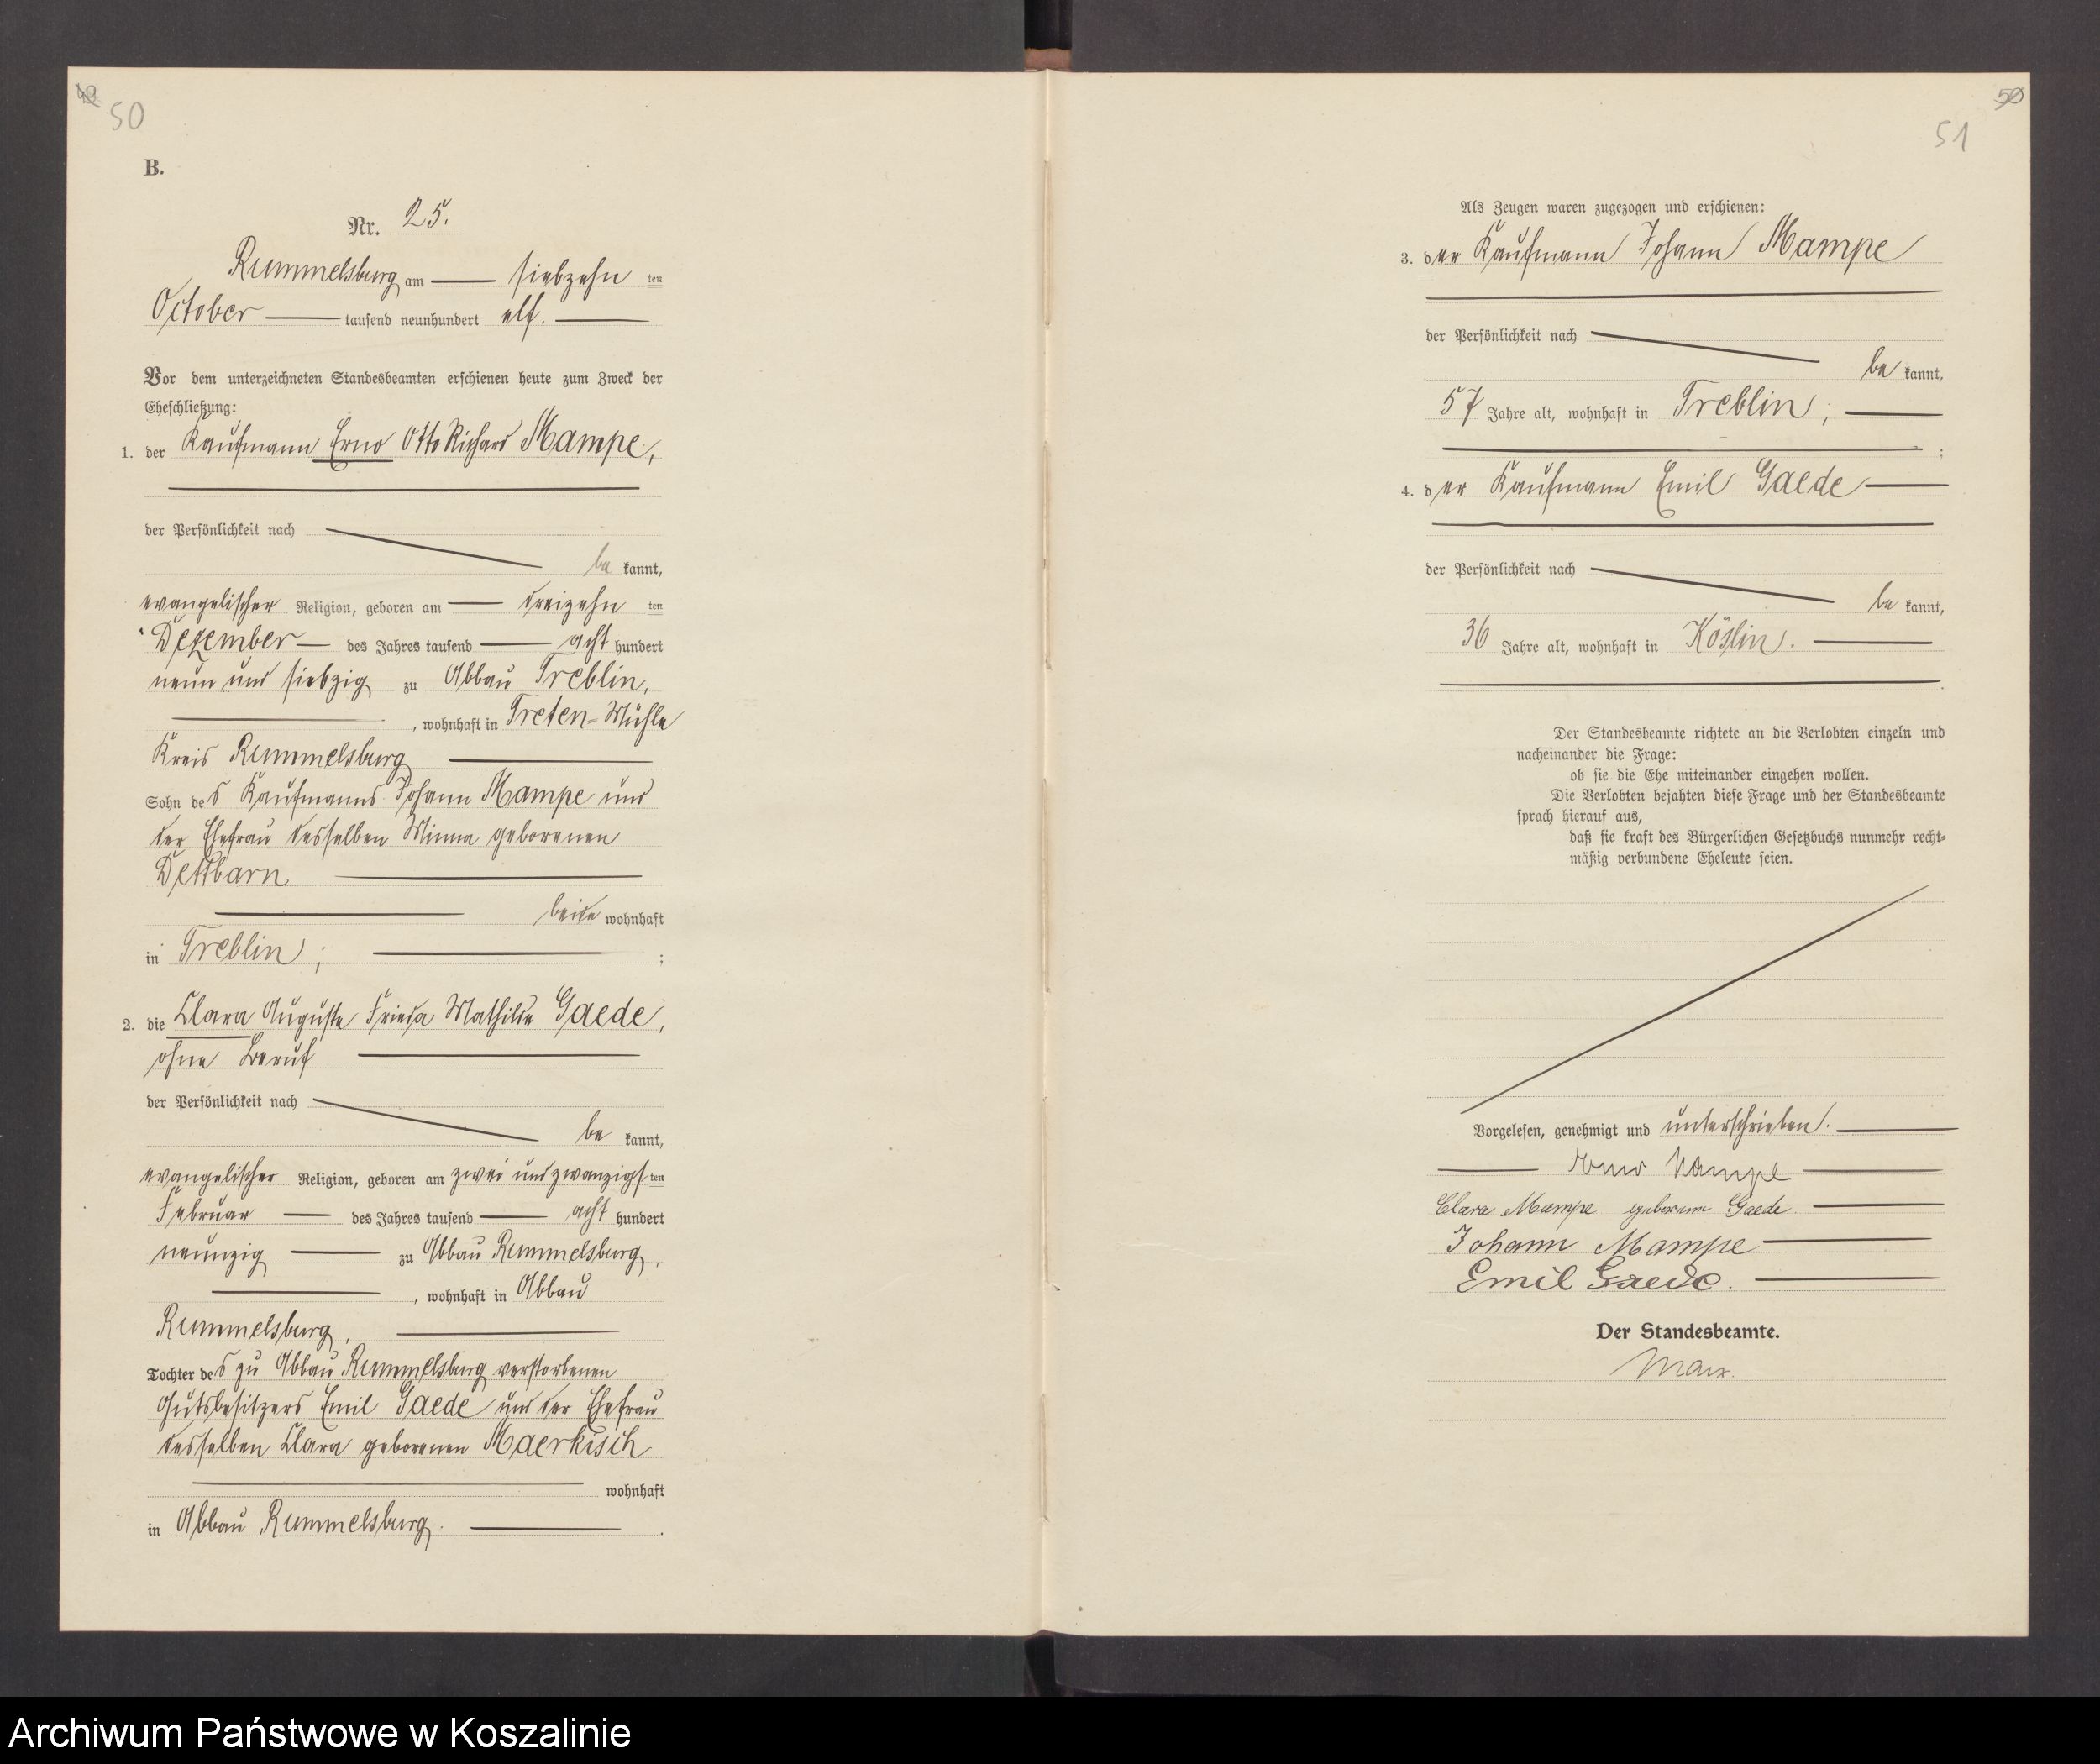 49
50
B.
Nr. 25.
Rummelsburg am siebzehn ten
October tausend neunhundert elf.
Vor dem unterzeichneten Standesbeamten erschienen heute zum Zweck der
Eheschließung:
1. der Kaufmann Erno Otto Richard Mampe,
der Persönlichkeit nach
be kannt,
evangelischer Religion, geboren am dreizehn ten
Dezember des Jahres tausend acht hundert
neun und siebzig zu Abbau Treblin,
, wohnhaft in Treten-Mühle
Kreis Rummelsburg
Sohn des Kaufmanns Johann Mampe und
der Ehefrau desselben Minna geborenen
Dettbarn
beide wohnhaft
in Treblin; ;
2. die Clara Auguste Frieda Mathilde Gaede,
ohne Beruf
der Persönlichkeit nach
be kannt,
evangelischer Religion, geboren am zwei und zwanzigsten
Februar des Jahres tausend acht hundert
neunzig zu Abbau Rummelsburg,
, wohnhaft in Abbau
Rummelsburg,
Tochter des zu Abbau Rummelsburg verstorbenen
Gutsbesitzers Emil Gaede und der Ehefrau
desselben Clara geborenen Maerkisch
wohnhaft
in Abbau Rummelsburg. .
50
51
Als Zeugen waren zugezogen und erschienen:
3. der Kaufmann Johann Mampe
der Persönlichkeit nach
be kannt,
57 Jahre alt, wohnhaft in Treblin;
;
4. der Kaufmann Emil Gaede
der Persönlichkeit nach
be kannt,
36 Jahre alt, wohnhaft in Köslin.
.
Der Standesbeamte richtete an die Verlobten einzeln und
nacheinander die Frage:
ob sie die Ehe miteinander eingehen wollen.
Die Verlobten bejahten diese Frage und der Standesbeamte
sprach hierauf aus,
daß sie kraft des Bürgerlichen Gesetzbuchs nunmehr recht-
mäßig verbundene Eheleute seien.
Vorgelesen, genehmigt und unterschrieben.
Erno Mampe
Clara Mampe geborene Gaede.
Johann Mampe
Emil Gaede.
Der Standesbeamte.
Marx.
Archiwum Państwowe w Koszalinie